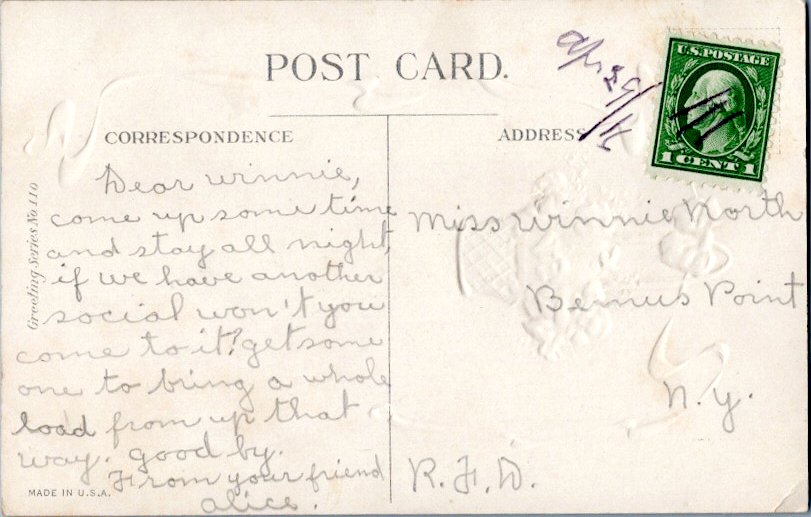 POST CARD.
CORRESPONDENCE
ADDRESS
U.S. POSTAGE
1 CENT 1
Greeting Series No 110
Dear winnie,
come up some time
and stay all night,
if we have another
social won't you
come to it? get some
one to bring a whole
load from up that
way. good by.
From your friend
alice.
MADE IN U.S.A.
Miss Winnie North
Bemus Point
N.Y.
R.F.D.